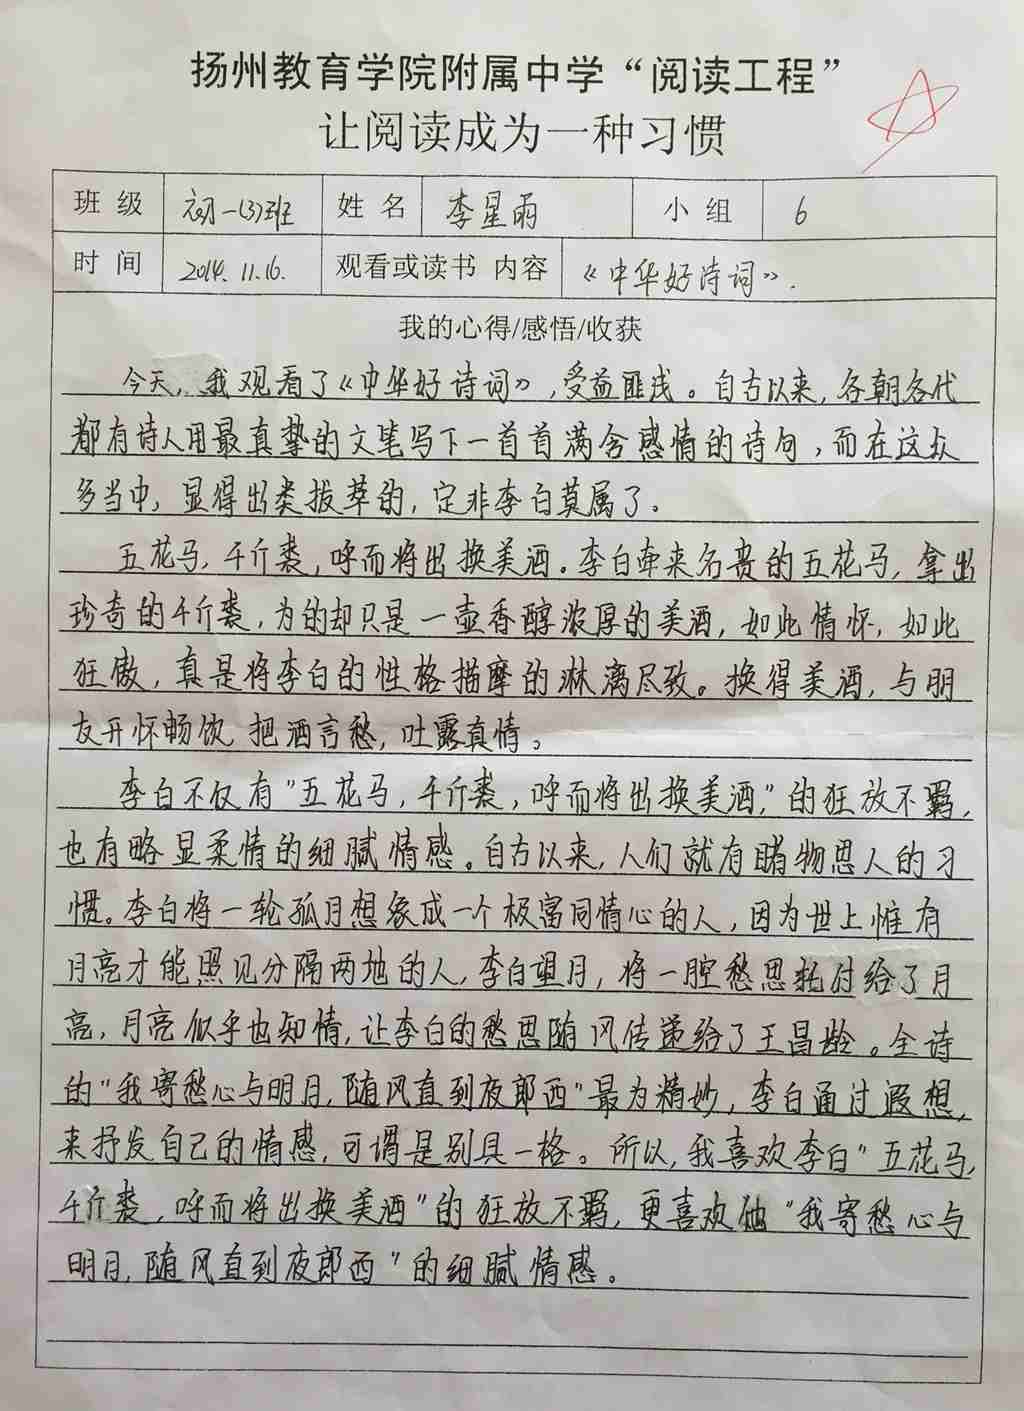 扬州教育学院附属中学“阅读工程”
让阅读成为一种习惯
班 级 初一(3)班 姓 名 李星雨 小 组 6
时 间 2014.11.16. 观看或读书 内容 《中华好诗词》.
我的心得/感悟/收获
今天，我观看了《中华好诗词》，受益匪浅。自古以来，各朝各代
都有诗人用最真挚的文笔写下一首首满含感情的诗句，而在这众
多当中，显得出类拔萃的，定非李白莫属了。
五花马，千斤裘，呼而将出换美酒。李白牵来名贵的五花马，拿出
珍奇的千斤裘，为的却只是一壶香醇浓厚的美酒，如此情怀，如此
狂傲，真是将李白的性格描摩的淋漓尽致。换得美酒，与朋
友开怀畅饮 把酒言愁，吐露真情。
李白不仅有“五花马，千斤裘，呼而将出换美酒，”的狂放不羁，
也有略显柔情的细腻情感。自古以来，人们就有睹物思人的习
惯。李白将一轮孤月想象成一个极富同情心的人，因为世上惟有
月亮才能照见分隔两地的人，李白望月，将一腔愁思托付给了月
亮，月亮似乎也知情，让李白的愁思随风传递给了王昌龄。全诗
的“我寄愁心与明月，随风直到夜郎西”最为精妙，李白通过遐想，
来抒发自己的情感，可谓是别具一格。所以，我喜欢李白“五花马，
千斤裘，呼而将出换美酒”的狂放不羁，更喜欢他“我寄愁心与
明月，随风直到夜郎西”的细腻情感。